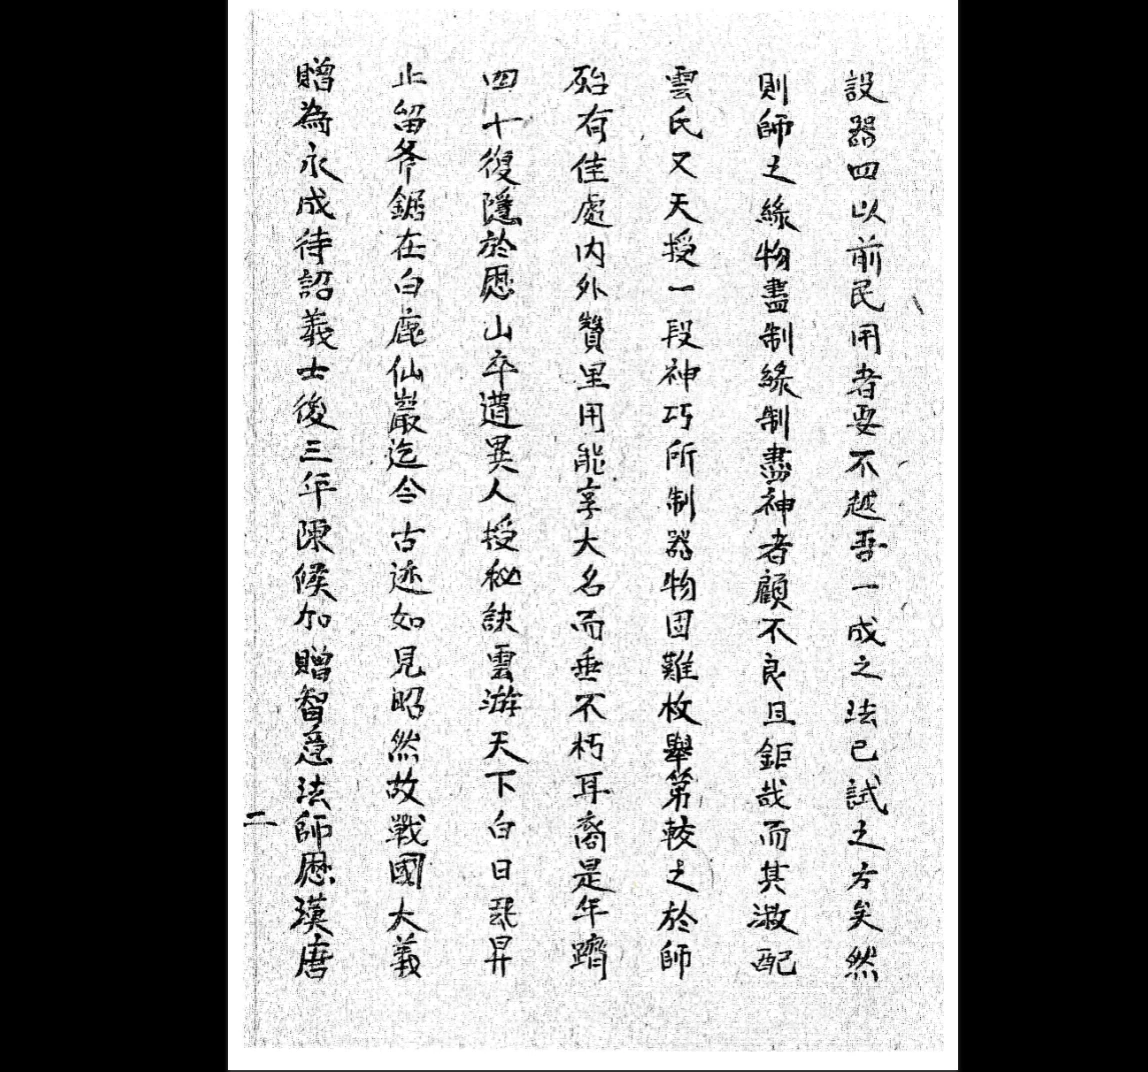 設器四以前民用者要不越吾一成之法已試之方矣然
則師之緣物盡制緣制盡神者顧不良且鉅哉而其淑配
雲氏又天授一段神巧所制器物固難枚舉第較之於師
殆有佳處內外贊里用能享大名而垂不朽耳裔是年躋
四十復隱於歷山卒遘異人授秘訣雲游天下白日飛昇
止留斧鋸在白鹿仙巖迄今古迹如見昭然故戰國大義
贈為永成待詔義士後三年陳侯加贈智惠法師歷漢唐
二